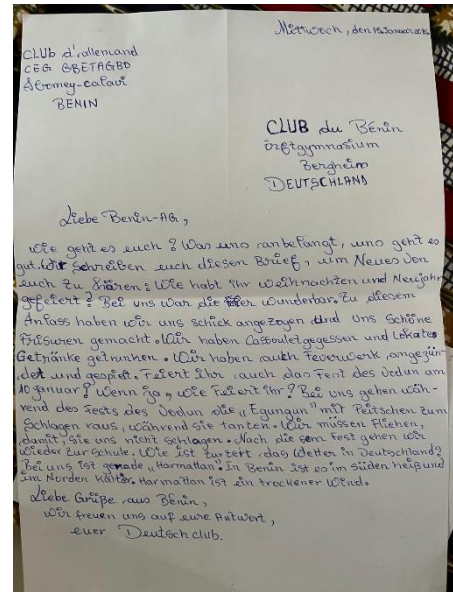 Mittwoch, den 15. Januar
CLUB d'allemand
CEG GBETAGBO
Abomey-calavi
BENIN
CLUB du Bénin
Erftgymnasium
Bergheim
DEUTSCHLAND
Liebe Benin-AG,
wie geht es euch? Was uns anbelangt, uns geht es
gut. Wir schreiben euch diesen Brief, um Neues von
euch zu hören: Wie habt ihr Weihnachten und Neujahr
gefeiert? Bei uns war die Feier wunderbar. Zu diesem
Anlass haben wir uns schick angezogen und uns schöne
Frisuren gemacht. Wir haben Cassoulet gegessen und lokales
Getränke getrunken. Wir haben auch Feuerwerk angezün-
det und gespielt. Feiert ihr auch das Fest des Vodun am
10 Januar? Wenn ja, wie feiert ihr? Bei uns gehen wäh-
rend des Fests des Vodun die "Egungun" mit Peitschen zum
Schlagen raus, während sie tanten. Wir müssen fliehen,
damit sie uns nicht schlagen. Nach diesem Fest gehen wir
wieder zur Schule. Wie ist zurzeit das Wetter in Deutschland?
Bei uns ist gerade "Harmattan". In Benin ist es im Süden heiß und
im Norden kälter. Harmattan ist ein trockener Wind.
Liebe Grüße aus Bénin,
wir freuen uns auf eure Antwort,
euer Deutschclub.